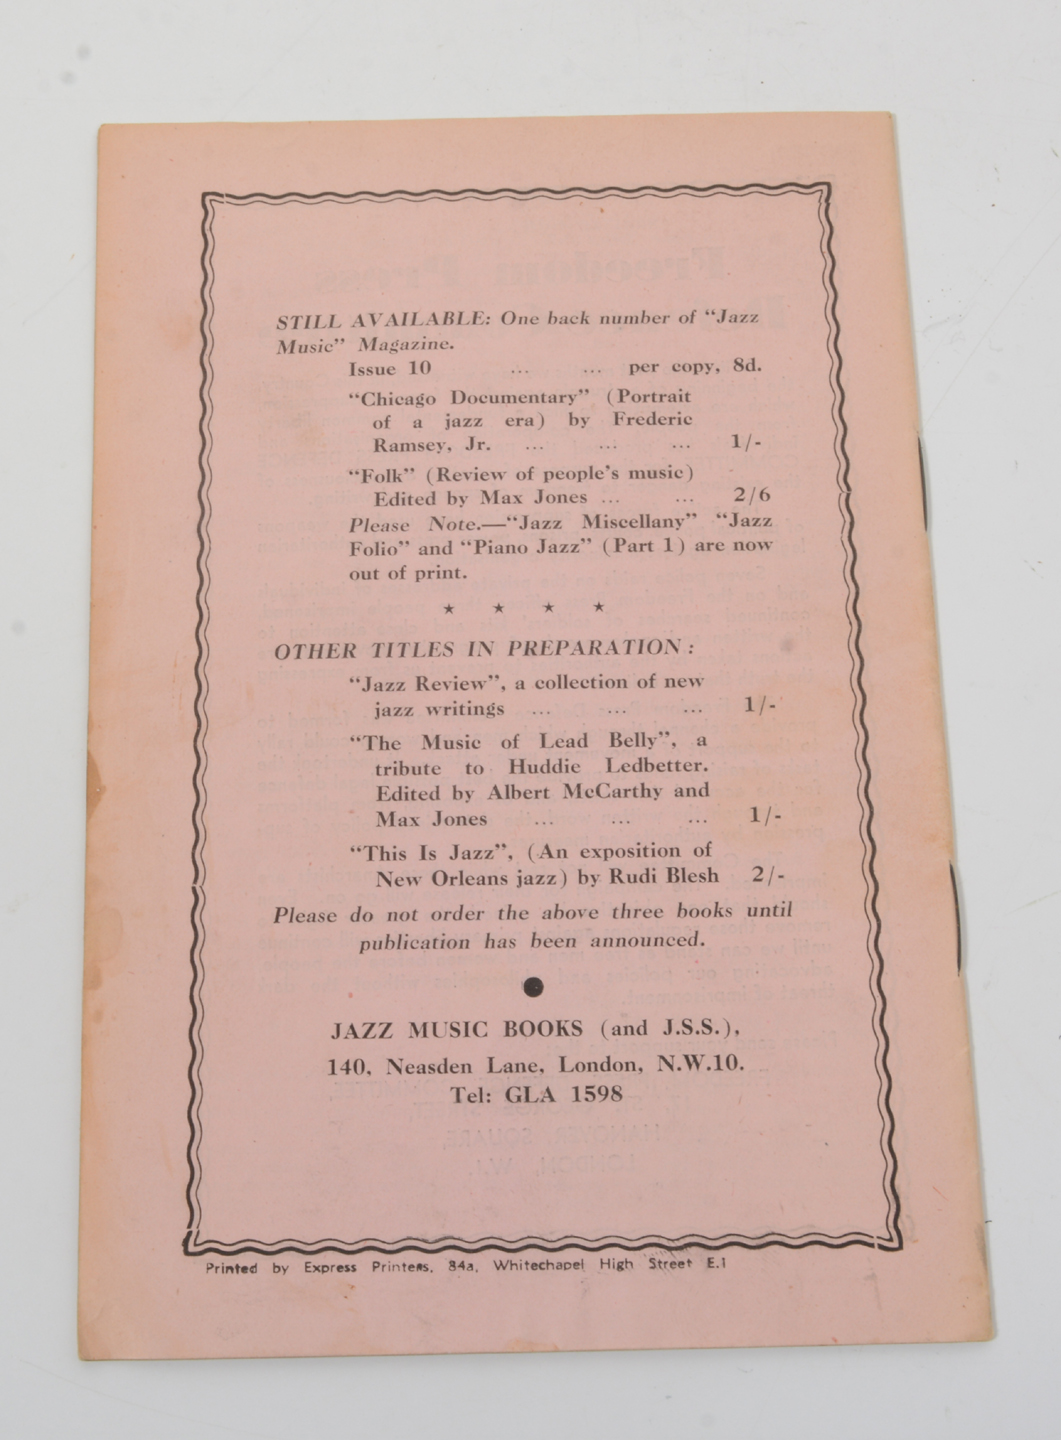 STILL AVAILABLE: One back number of "Jazz
Music" Magazine.
Issue 10 ... ... per copy, 8d.
"Chicago Documentary" (Portrait
of a jazz era) by Frederic
Ramsey, Jr. ... ... ... 1/-
"Folk" (Review of people's music)
Edited by Max Jones ... ... 2/6
Please Note.—"Jazz Miscellany" "Jazz
Folio" and "Piano Jazz" (Part 1) are now
out of print.
★ ★ ★ ★
OTHER TITLES IN PREPARATION:
"Jazz Review", a collection of new
jazz writings ... ... ... 1/-
"The Music of Lead Belly", a
tribute to Huddie Ledbetter.
Edited by Albert McCarthy and
Max Jones ... ... ... 1/-
"This Is Jazz", (An exposition of
New Orleans jazz) by Rudi Blesh 2/-
Please do not order the above three books until
publication has been announced.
●
JAZZ MUSIC BOOKS (and J.S.S.),
140, Neasden Lane, London, N.W.10.
Tel: GLA 1598
Printed by Express Printers, 84a, Whitechapel High Street E.1